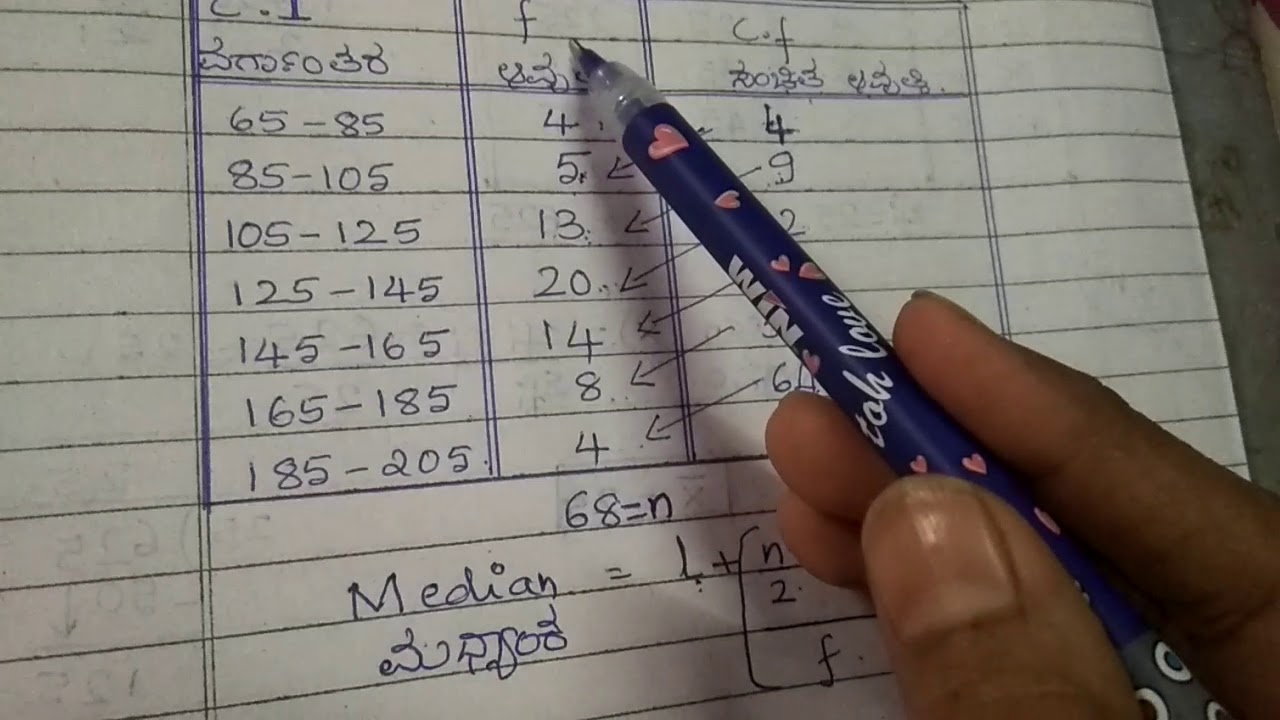 C.I f C.f
ವರ್ಗಾಂತರ ಸಂಚಿತ ಆವೃತ್ತಿ.
65-85 4 4
85-105 5 9
105-125 13
125-145 20
145-165 14
165-185 8 64
185-205 4
68=n
Median = L + [ n
2
ಮಧ್ಯಾಂಕ f
WIN
toh love